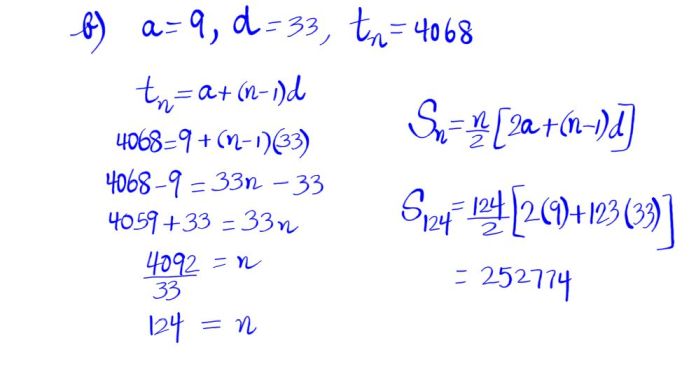 b) a = 9, d = 33, tn = 4068
tn = a + (n-1)d
4068 = 9 + (n-1)(33)
4068 - 9 = 33n - 33
4059 + 33 = 33n
4092/33 = n
124 = n
Sn = n/2 [2a + (n-1)d]
S124 = 124/2 [2(9) + 123(33)]
= 252774